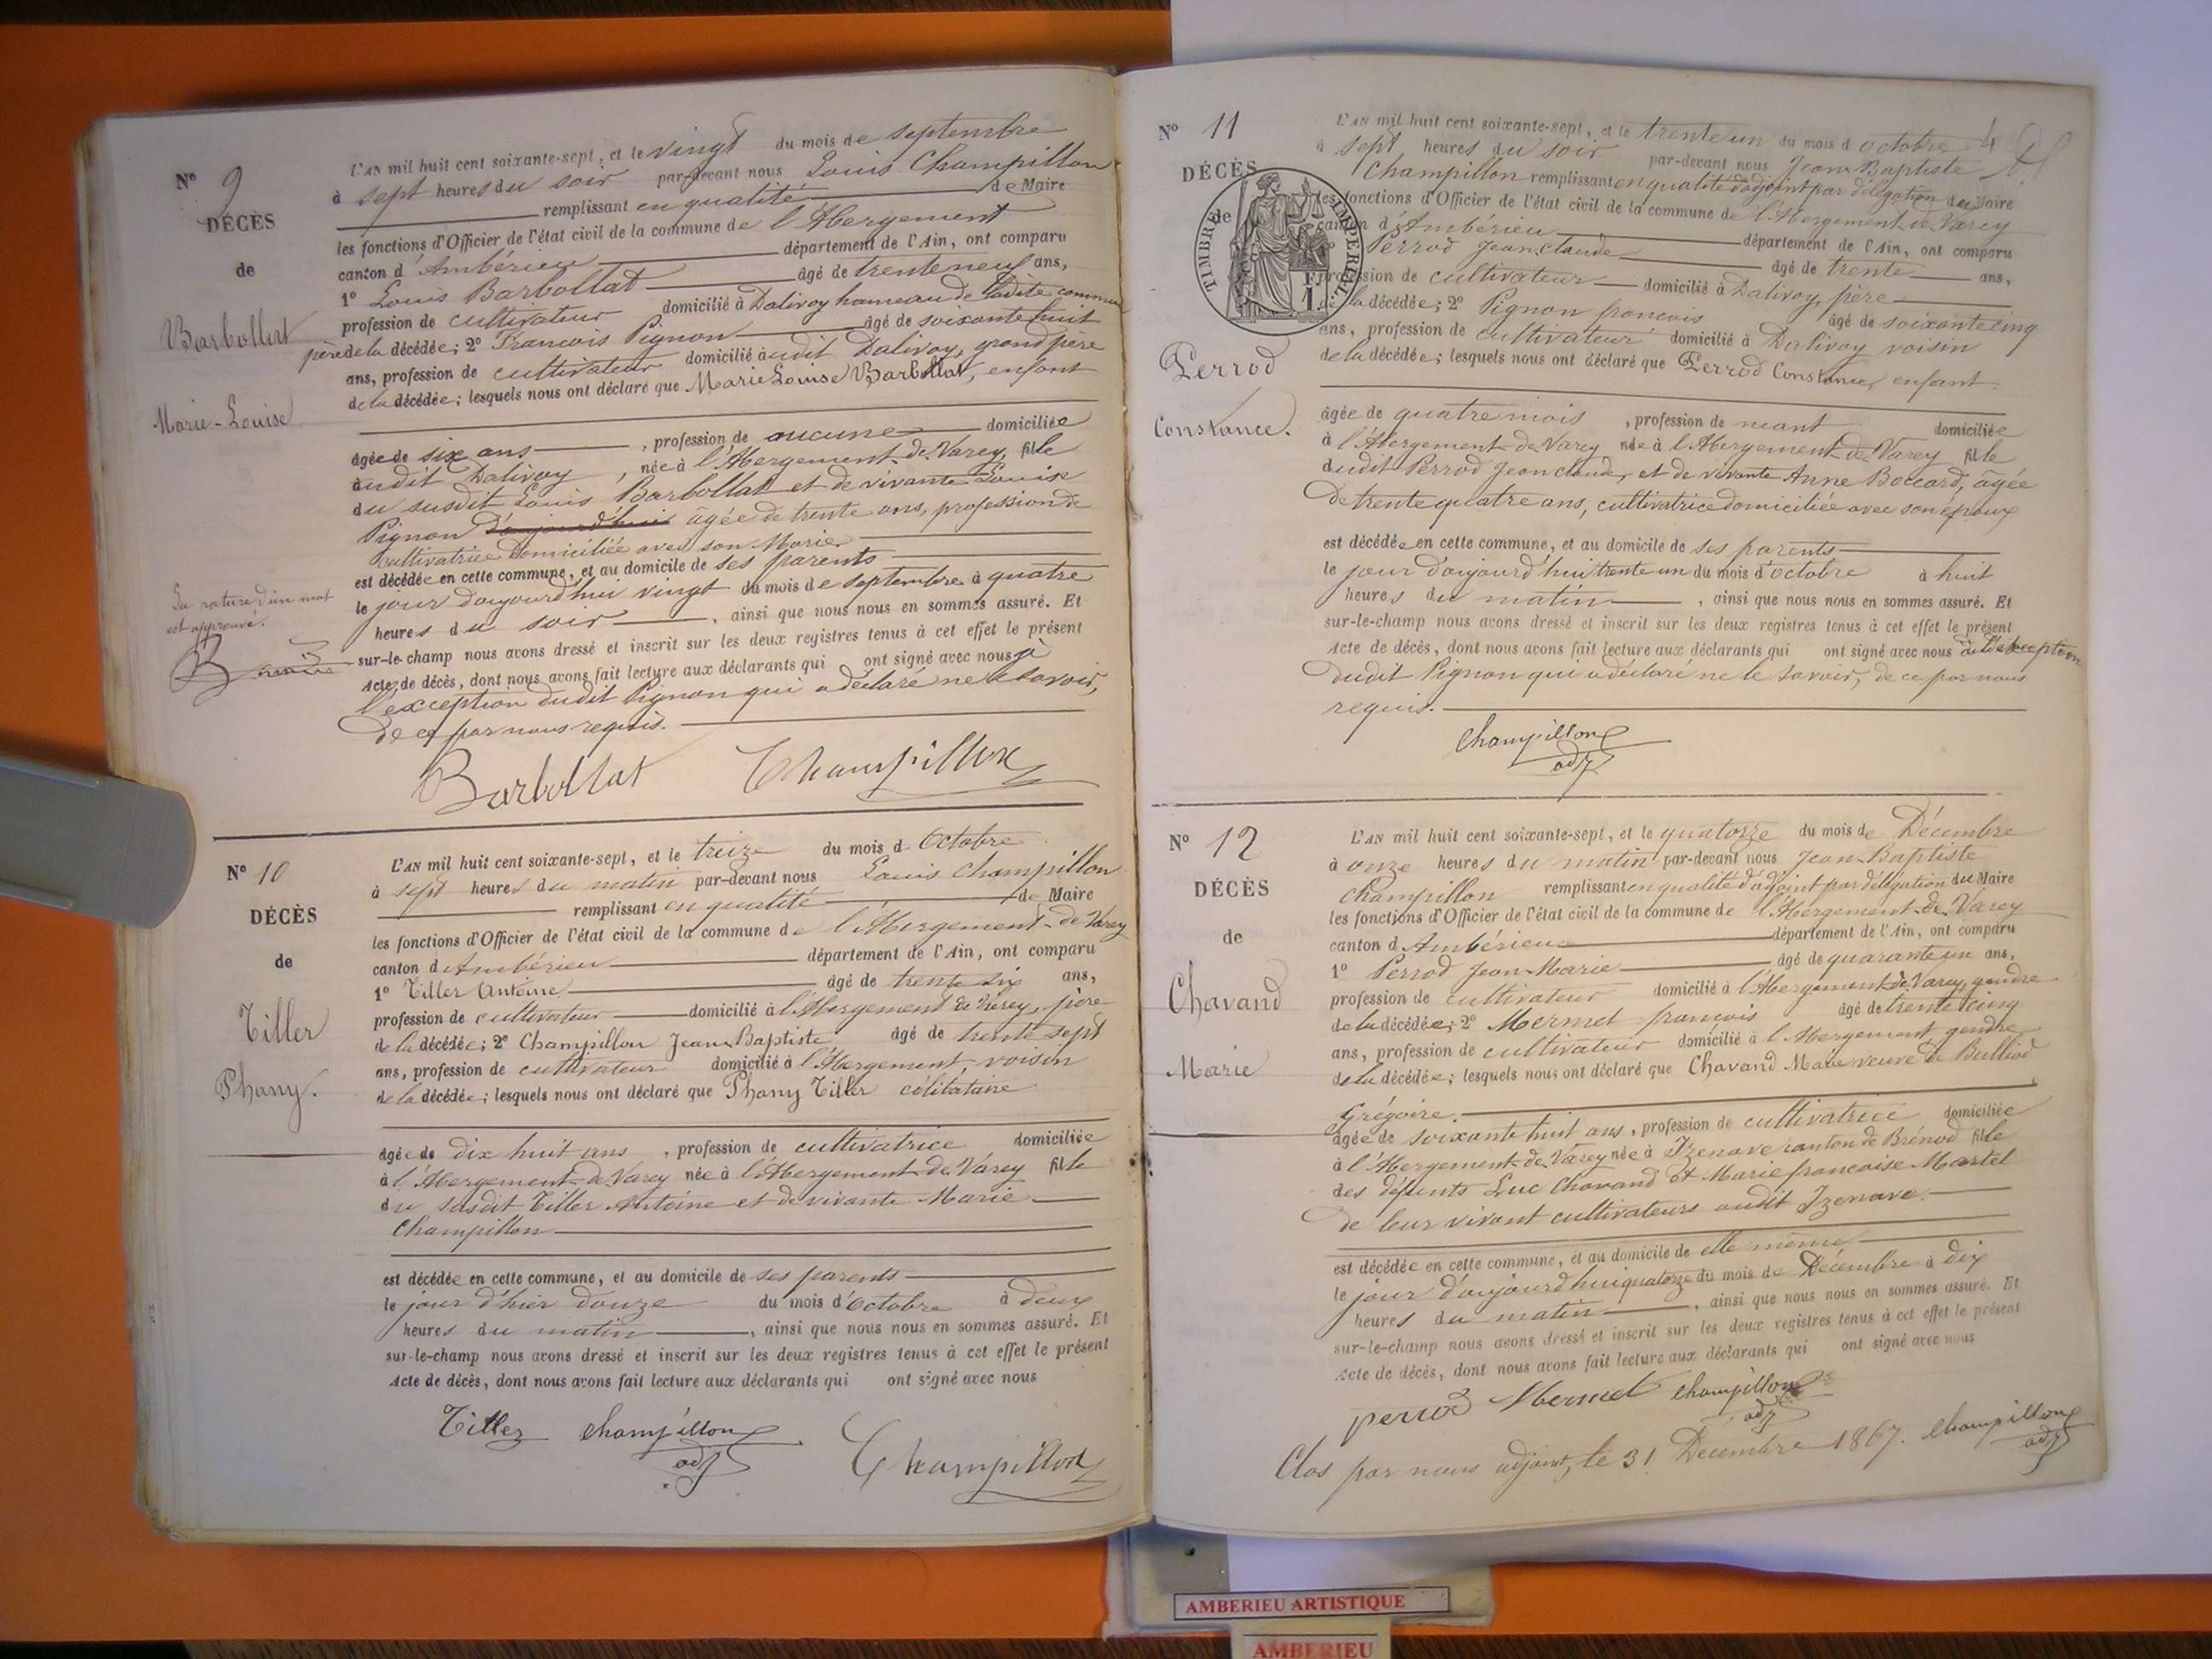 N° 9
DÉCÈS
de
Barbollat
Marie-Louise
L'AN mil huit cent soixante-sept, et le vingt du mois de septembre
à sept heures du soir par-devant nous Louis Champillon
remplissant en qualité de Maire
les fonctions d'Officier de l'état civil de la commune de l'Abergement
canton d'Ambérieu département de l'Ain, ont comparu
1° Louis Barbollat âgé de trente neuf ans,
profession de cultivateur domicilié à Dalivoy hameau de ladite commune
père de la décédée; 2° Francois Pignon âgé de soixante huit
ans, profession de cultivateur domicilié audit Dalivoy, grand père
de la décédée; lesquels nous ont déclaré que Marie Louise Barbollat, enfant
âgée de six ans, profession de aucune domiciliée
audit Dalivoy, née à l'Abergement-de-Varey, fille
du susdit Louis Barbollat et de vivante Louise
Pignon d'aujourd'hui âgée de trente ans, profession de
cultivatrice domiciliée avec son Marie
est décédée en cette commune, et au domicile de ses parents
le jour d'aujourd'hui vingt du mois de septembre à quatre
heures du soir, ainsi que nous nous en sommes assuré. Et
sur-le-champ nous avons dressé et inscrit sur les deux registres tenus à cet effet le présent
Acte de décès, dont nous avons fait lecture aux déclarants qui ont signé avec nous à
l'exception dudit Pignon qui a déclaré ne le savoir,
de ce par nous requis.
La rature d'un mot
est approuvé.
Barbollat Champillon
N° 10
DÉCÈS
de
Tiller
Phany.
L'AN mil huit cent soixante-sept, et le treize du mois d Octobre
à sept heures du matin par-devant nous Louis Champillon
remplissant en qualité de Maire
les fonctions d'Officier de l'état civil de la commune de l'Abergement-de-Varey
canton d'Ambérieu département de l'Ain, ont comparu
1° Tiller Antoine âgé de trente six ans,
profession de cultivateur domicilié à l'Abergement de Varey, père
de la décédée; 2° Champillon Jean Baptiste âgé de trente sept
ans, profession de cultivateur domicilié à l'Abergement, voisin
de la décédée; lesquels nous ont déclaré que Phany Tiller célibataire
âgée de dix huit ans, profession de cultivatrice domiciliée
à l'Abergement-de Varey née à l'Abergement-de-Varey fille
du susdit Tiller Antoine et de vivante Marie
Champillon
est décédée en cette commune, et au domicile de ses parents
le jour d'hier douze du mois d'octobre à deux
heures du matin, ainsi que nous nous en sommes assuré. Et
sur-le-champ nous avons dressé et inscrit sur les deux registres tenus à cet effet le présent
Acte de décès, dont nous avons fait lecture aux déclarants qui ont signé avec nous
Tiller Champillon adj Champillon
N° 11
DÉCÈS
de
TIMBRE IMPERIAL.
Perrod
Constance.
L'AN mil huit cent soixante-sept, et le trente un du mois d octobre
à sept heures du soir par-devant nous Jean Baptiste
Champillon remplissant en qualité d'adjoint par délégation du Maire
les fonctions d'Officier de l'état civil de la commune de l'Abergement-de Varey
canton d'Ambérieu département de l'Ain, ont comparu
Perrod Jean claude âgé de trente ans,
profession de cultivateur domicilié à Dalivoy, père
de la décédée; 2° Pignon francois âgé de soixante cinq
ans, profession de cultivateur domicilié à Dalivoy voisin
de la décédée; lesquels nous ont déclaré que Perrod Constance, enfant
âgée de quatre mois, profession de néant domiciliée
à l'Abergement-de-Varey née à l'Abergement-de-Varey fille
dudit Perrod Jean claude, et de vivante Anne Boccard, âgée
de trente quatre ans, cultivatrice domiciliée avec son époux
est décédée en cette commune, et au domicile de ses parents
le jour d'aujourd'hui trente un du mois d'octobre à huit
heures du matin, ainsi que nous nous en sommes assuré. Et
sur-le-champ nous avons dressé et inscrit sur les deux registres tenus à cet effet le présent
Acte de décès, dont nous avons fait lecture aux déclarants qui ont signé avec nous à l'exception
dudit Pignon qui a déclaré ne le savoir, de ce par nous
requis.
Champillon
adj
N° 12
DÉCÈS
de
Chavand
Marie
L'AN mil huit cent soixante-sept, et le quatorze du mois de Décembre
à onze heures du matin par-devant nous Jean-Baptiste
Champillon remplissant en qualité d'adjoint par délégation du Maire
les fonctions d'Officier de l'état civil de la commune de l'Abergement-de-Varey
canton d'Ambérieu département de l'Ain, ont comparu
1° Perrod Jean-Marie âgé de quarante un ans,
profession de cultivateur domicilié à l'Abergement-de Varey, gendre
de la décédée; 2° Mermet françois âgé de trente cinq
ans, profession de cultivateur domicilié à l'Abergement gendre
de la décédée; lesquels nous ont déclaré que Chavand Marie veuve de Bulliod
Grégoire.
âgée de soixante huit ans, profession de cultivatrice domiciliée
à l'Abergement-de-Varey née à Izenave canton de Brénod fille
des défunts Luc Chavand et Marie francoise Martel
de leur vivant cultivateurs audit Izenave.
est décédée en cette commune, et au domicile de elle même
le jour d'aujourd'hui quatorze du mois de Décembre à dix
heures du matin, ainsi que nous nous en sommes assuré. Et
sur-le-champ nous avons dressé et inscrit sur les deux registres tenus à cet effet le présent
Acte de décès, dont nous avons fait lecture aux déclarants qui ont signé avec nous
perrod Mermet Champillon
adj
Clos par nous adjoint, le 31 Décembre 1867. Champillon
adj
AMBERIEU ARTISTIQUE
AMBERIEU